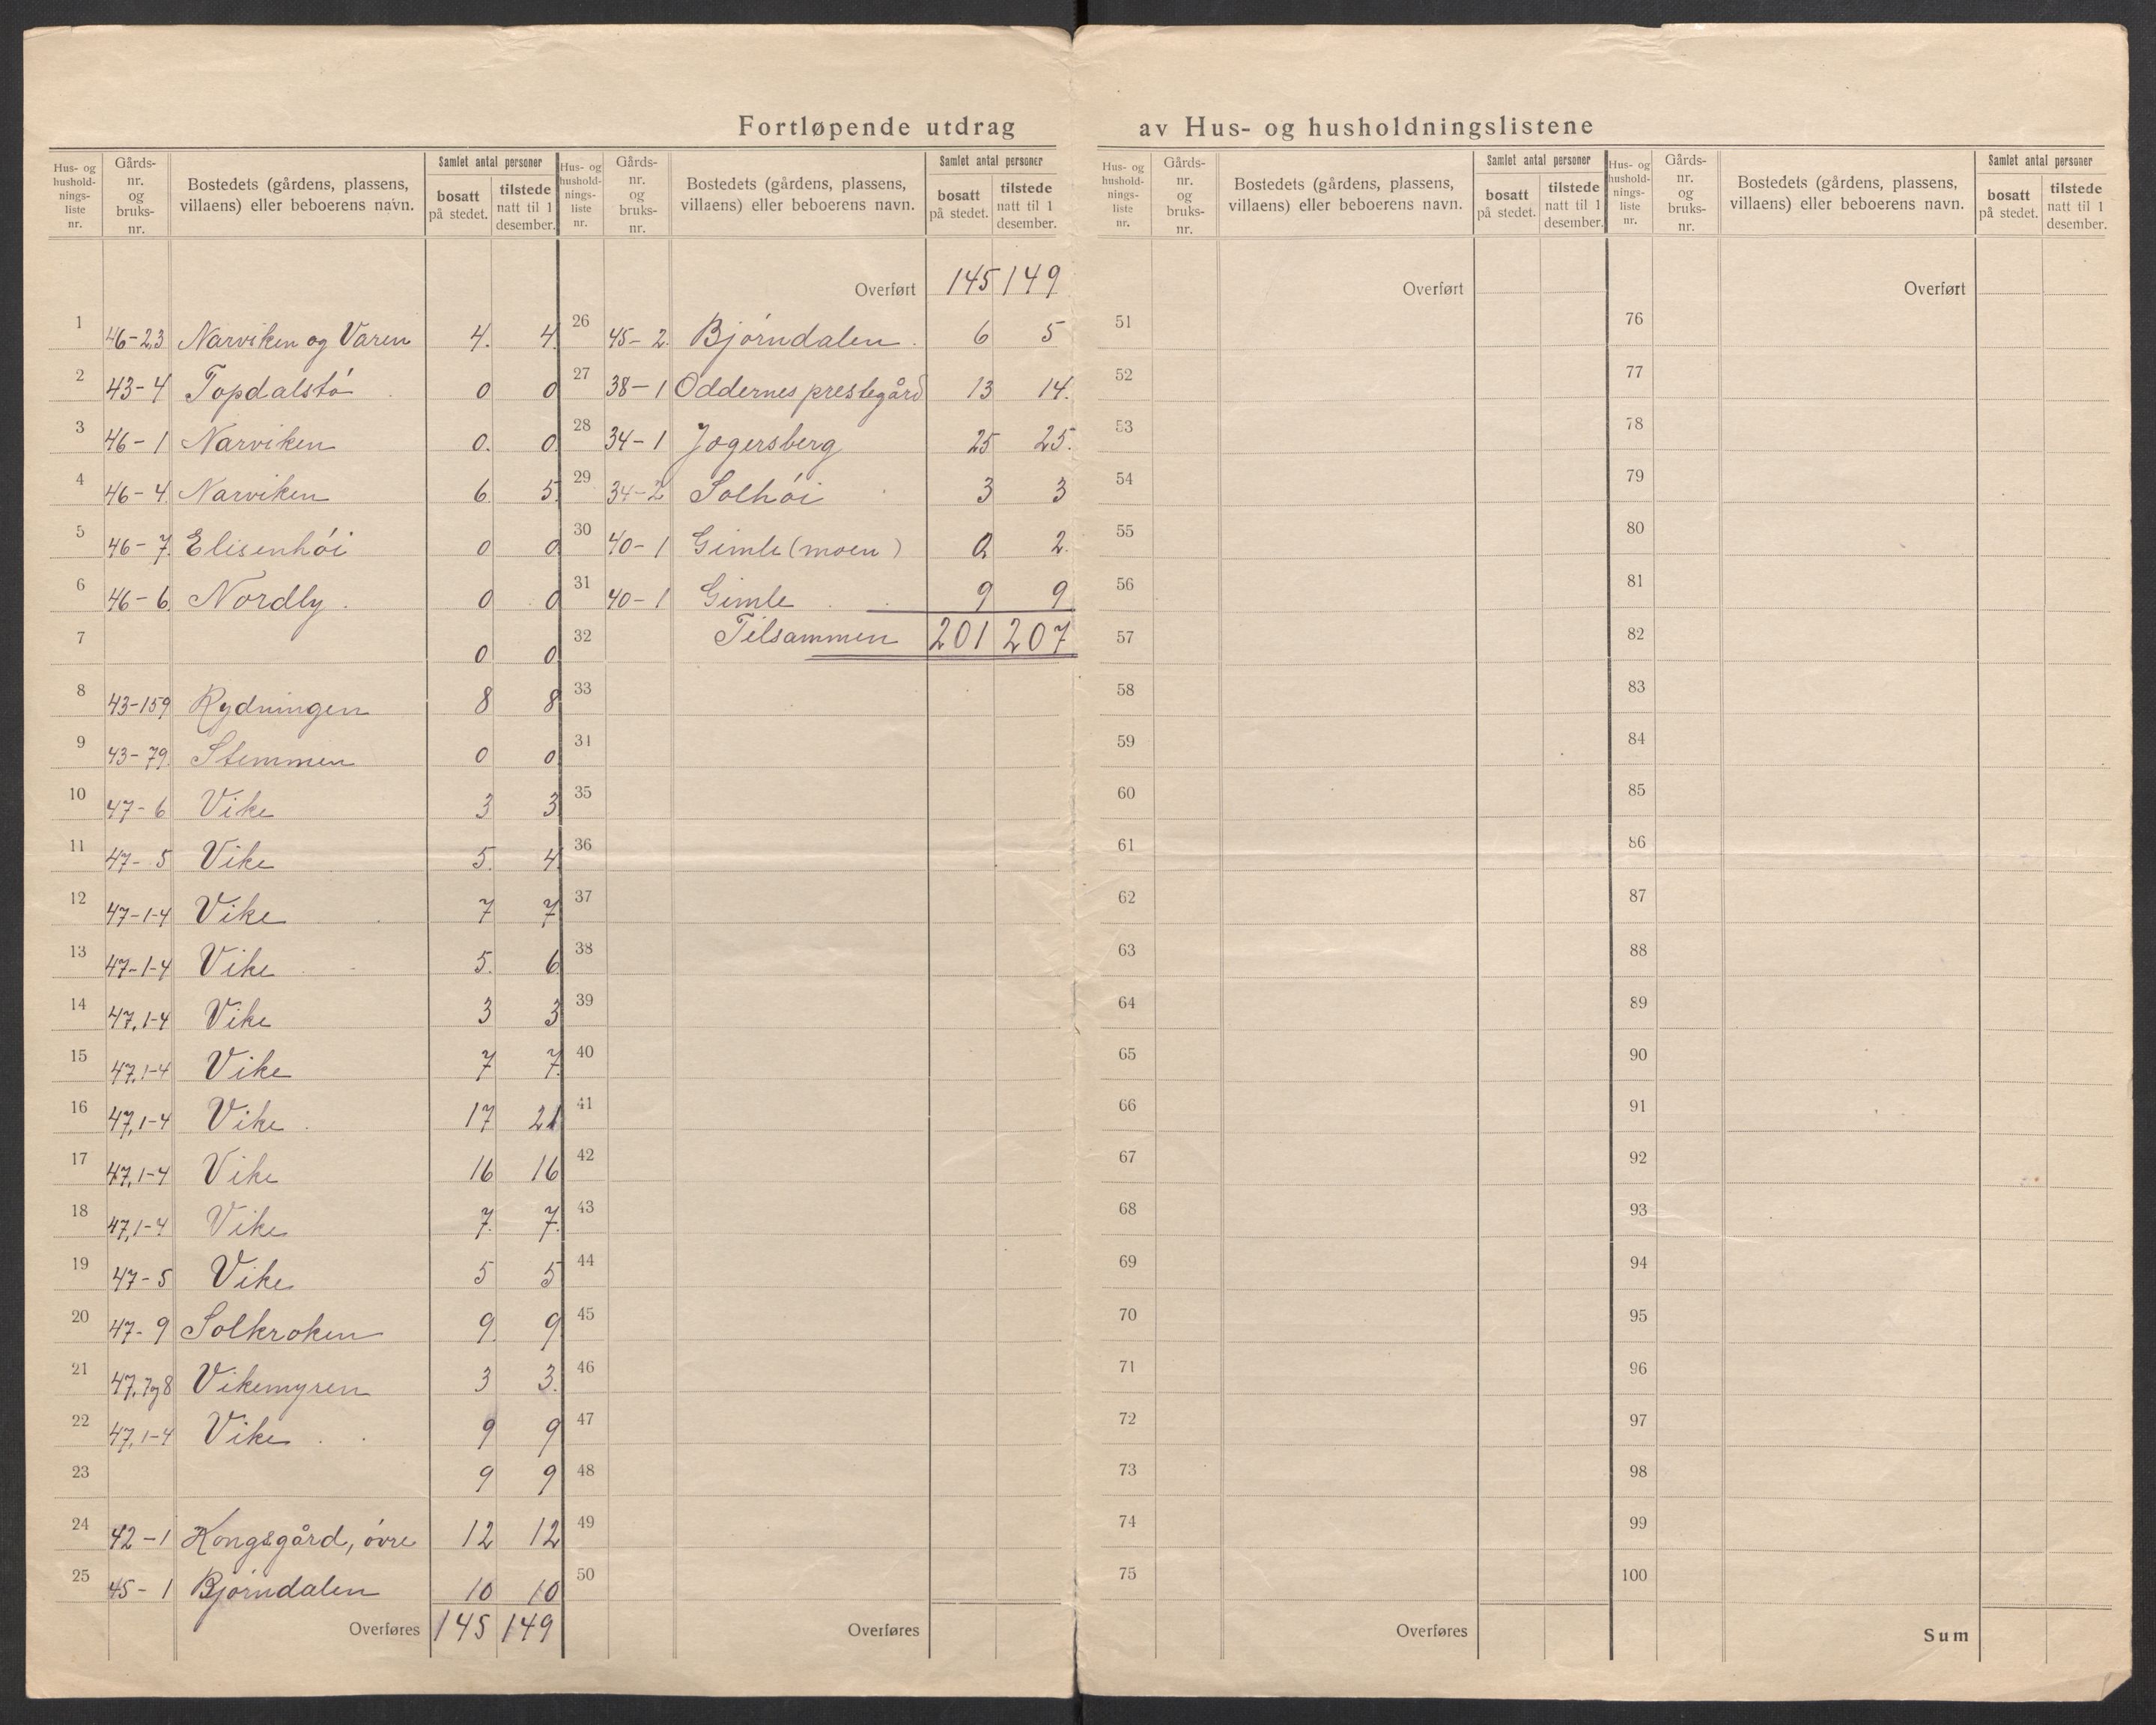 Fortløpende utdrag av Hus- og husholdningslistene
Hus- og husholdnings-liste nr. Gårds-nr. og bruks-nr. Bostedets (gårdens, plassens, villaens) eller beboerens navn. Samlet antal personer bosatt på stedet. tilstede natt til 1 desember.
1 46-2,3 Narviken og Varen 4. 4.
2 43-4 Topdalstø 0 0
3 46-1 Narviken 0. 0.
4 46-4. Narviken 6. 5.
5 46-7. Elisenhøi 0 0.
6 46-6. Nordly. 0 0
7 0 0
8 43-159 Rydningen 8 8
9 43-79. Stemmen 0 0
10 47-6 Vike 3 3
11 47-5 Vike 5. 4.
12 47-1-4 Vike 7 7
13 47-1-4 Vike 5. 6
14 47,1-4 Vike 3 3
15 47,1-4 Vike 7 7.
16 47,1-4 Vike 17 21
17 47,1-4 Vike 16 16
18 47,1-4 Vike 7. 7.
19 47-5 Vike 5 5
20 47-9 Solkroken 9. 9
21 47,7og8 Vikemyren 3 3.
22 47,1-4 Vike 9 9
23 9 9
24 42-1 Kongsgård, øvre 12 12
25 45-1 Bjørndalen 10 10
Overføres 145 149
Hus- og husholdnings-liste nr. Gårds-nr. og bruks-nr. Bostedets (gårdens, plassens, villaens) eller beboerens navn. Samlet antal personer bosatt på stedet. tilstede natt til 1 desember.
Overført 145 149
26 45-2. Bjørndalen. 6 5
27 38-1 Oddernes prestegård 13 14.
28 34-1 Jogersberg 25 25.
29 34-2 Solhøi 3 3
30 40-1 Gimle (moen) 0 2.
31 40-1 Gimle 9 9
32 Tilsammen 201 207
33
34
35
36
37
38
39
40
41
42
43
44
45
46
47
48
49
50
Overføres
Hus- og husholdnings-liste nr. Gårds-nr. og bruks-nr. Bostedets (gårdens, plassens, villaens) eller beboerens navn. Samlet antal personer bosatt på stedet. tilstede natt til 1 desember.
Overført
51
52
53
54
55
56
57
58
59
60
61
62
63
64
65
66
67
68
69
70
71
72
73
74
75
Overføres
Hus- og husholdnings-liste nr. Gårds-nr. og bruks-nr. Bostedets (gårdens, plassens, villaens) eller beboerens navn. Samlet antal personer bosatt på stedet. tilstede natt til 1 desember.
Overført
76
77
78
79
80
81
82
83
84
85
86
87
88
89
90
91
92
93
94
95
96
97
98
99
100
Sum